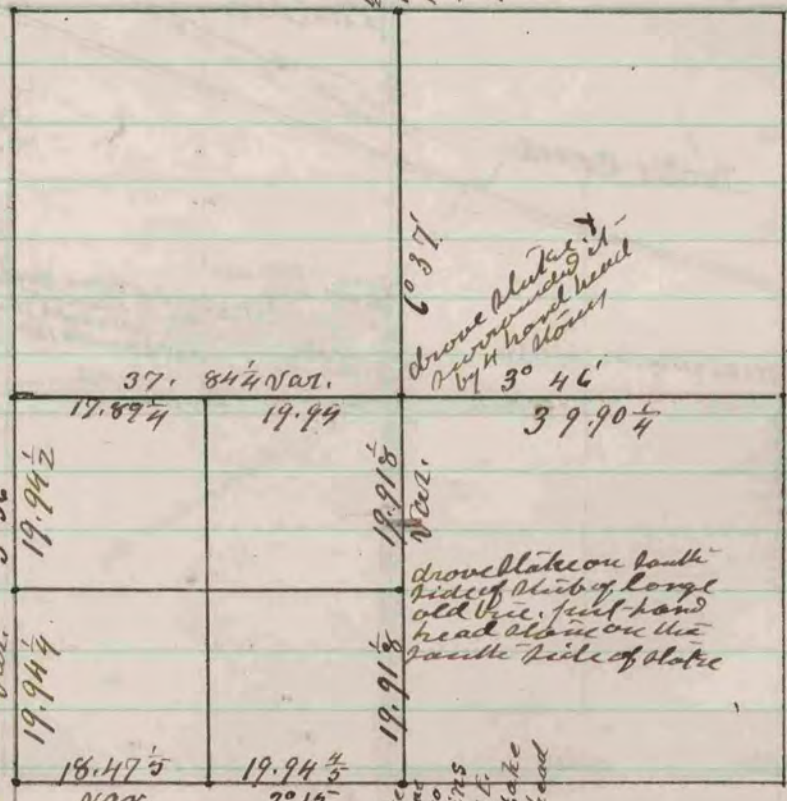 6° 37'
drove stake &
surrounded it
by 4 hard head
stones
37. 84 1/4 Var.
3° 46'
17.89 1/4
19.94
39.90 1/4
19.94 1/2
19.91 1/8
Var.
drove stake on south
side of stub of large
old tree. put hard
head stone on the
south side of stake
Var.
19.94 1/4
19.91 1/8
18.47 1/5
19.94 4/5
Var
2° 15'
E.
stake
head